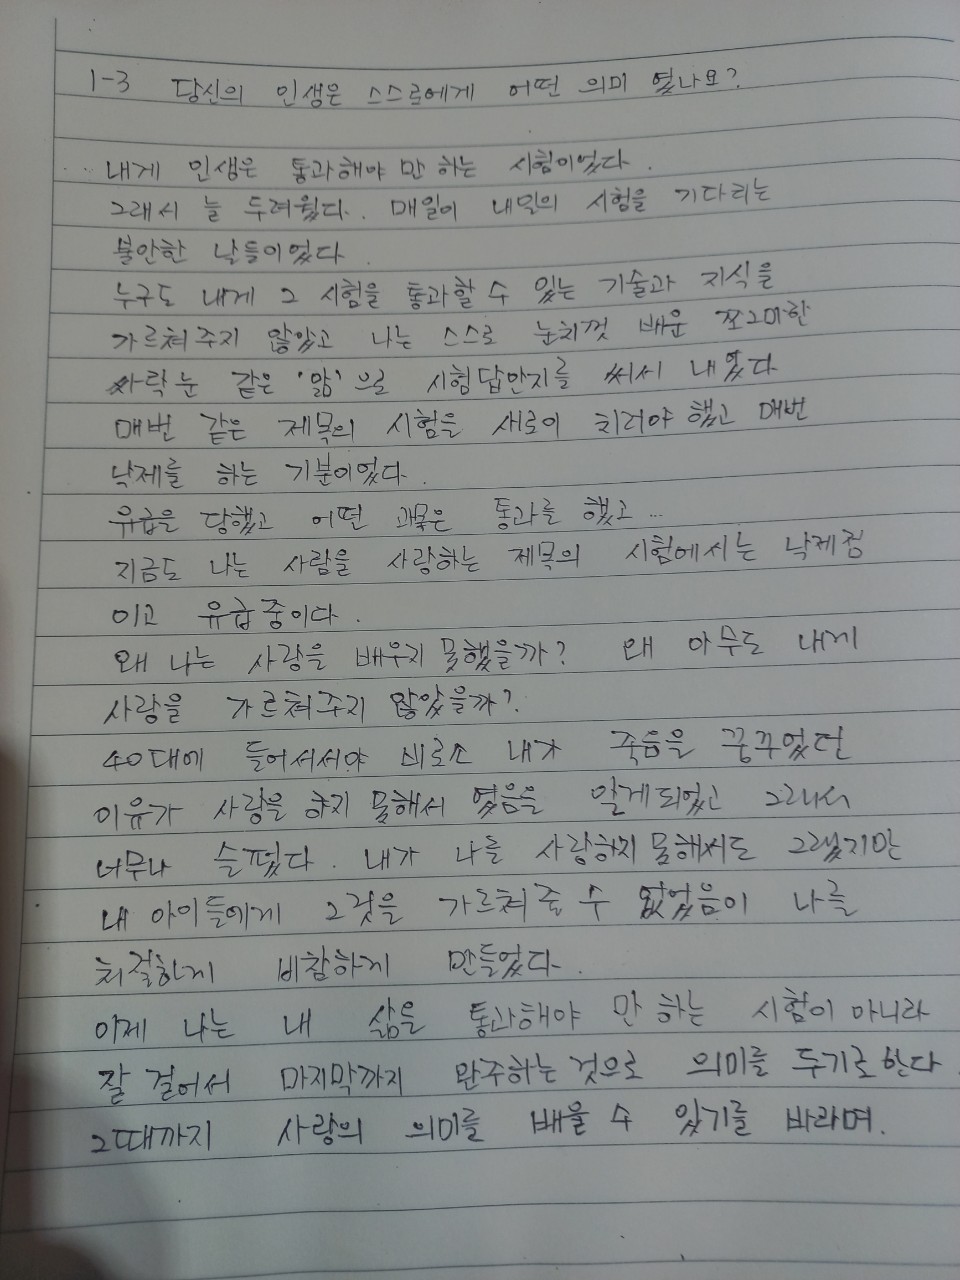 1-3 당신의 인생은 스스로에게 어떤 의미 였나요?
내게 인생은 통과해야 만 하는 시험이었다.
그래서 늘 두려웠다. 매일이 내일의 시험을 기다리는
불안한 날들이었다.
누구도 내게 그 시험을 통과할 수 있는 기술과 지식을
가르쳐주지 않았고 나는 스스로 눈치껏 배운 쪼그마한
싸락눈 같은 '앎'으로 시험답안지를 써서 내었다
매번 같은 제목의 시험을 새로이 치러야 했고 매번
낙제를 하는 기분이었다.
유급을 당했고 어떤 과목은 통과를 했고...
지금도 나는 사람을 사랑하는 제목의 시험에서는 낙제점
이고 유급중이다.
왜 나는 사랑을 배우지 못했을까? 왜 아무도 내게
사랑을 가르쳐주지 않았을까?
40대에 들어서서야 비로소 내가 죽음을 꿈꾸었던
이유가 사랑을 하지 못해서 였음을 알게되었고 그래서
너무나 슬펐다. 내가 나를 사랑하지 못해서도 그랬지만
내 아이들에게 그것을 가르쳐 줄 수 없었음이 나를
처절하게 비참하게 만들었다.
이제 나는 내 삶을 통과해야 만 하는 시험이 아니라
잘 걸어서 마지막까지 완주하는 것으로 의미를 두기로한다
그때까지 사랑의 의미를 배울 수 있기를 바라며.